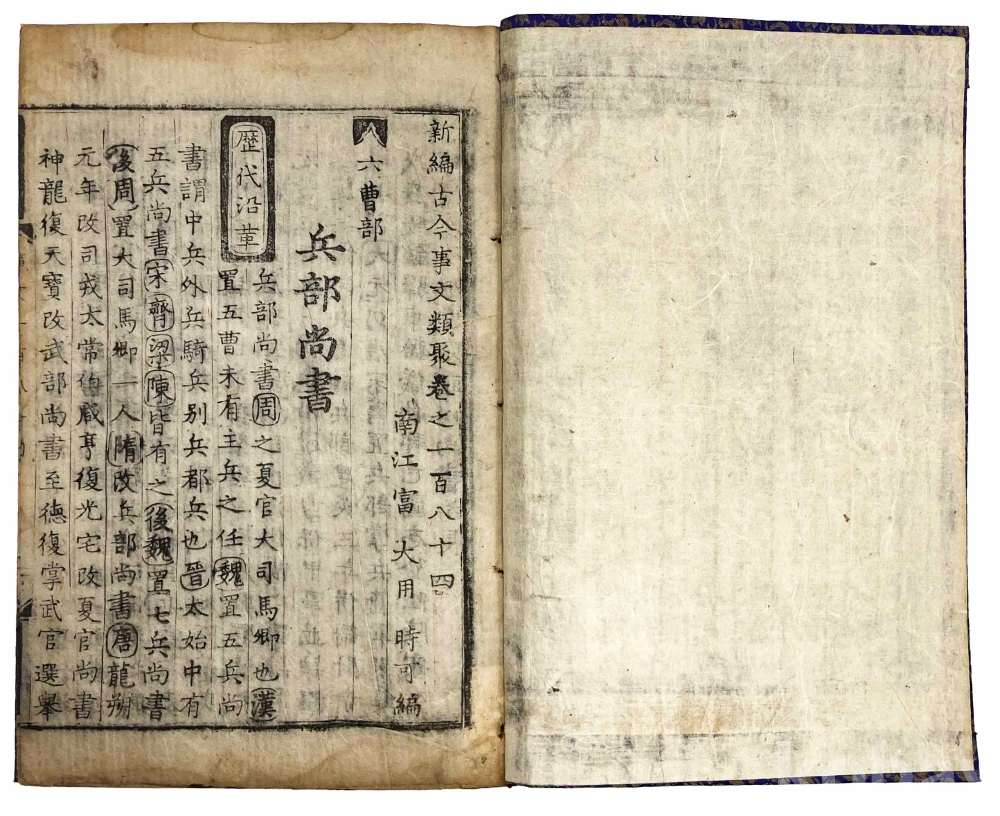 新編古今事文類聚卷之一百八十四
南江富大用時可編
六曹部
兵部尚書
歷代沿革
兵部尚書周之夏官大司馬卿也漢
置五曹未有主兵之任魏置五兵尚
書謂中兵外兵騎兵别兵都兵也晉太始中有
五兵尚書宋齊梁陳皆有之後魏置七兵尚書
後周置大司馬卿一人隋改兵部尚書唐龍朔
元年改司戎太常伯咸亨復光宅改夏官尚書
神龍復天寶改武部尚書至德復掌武官選舉